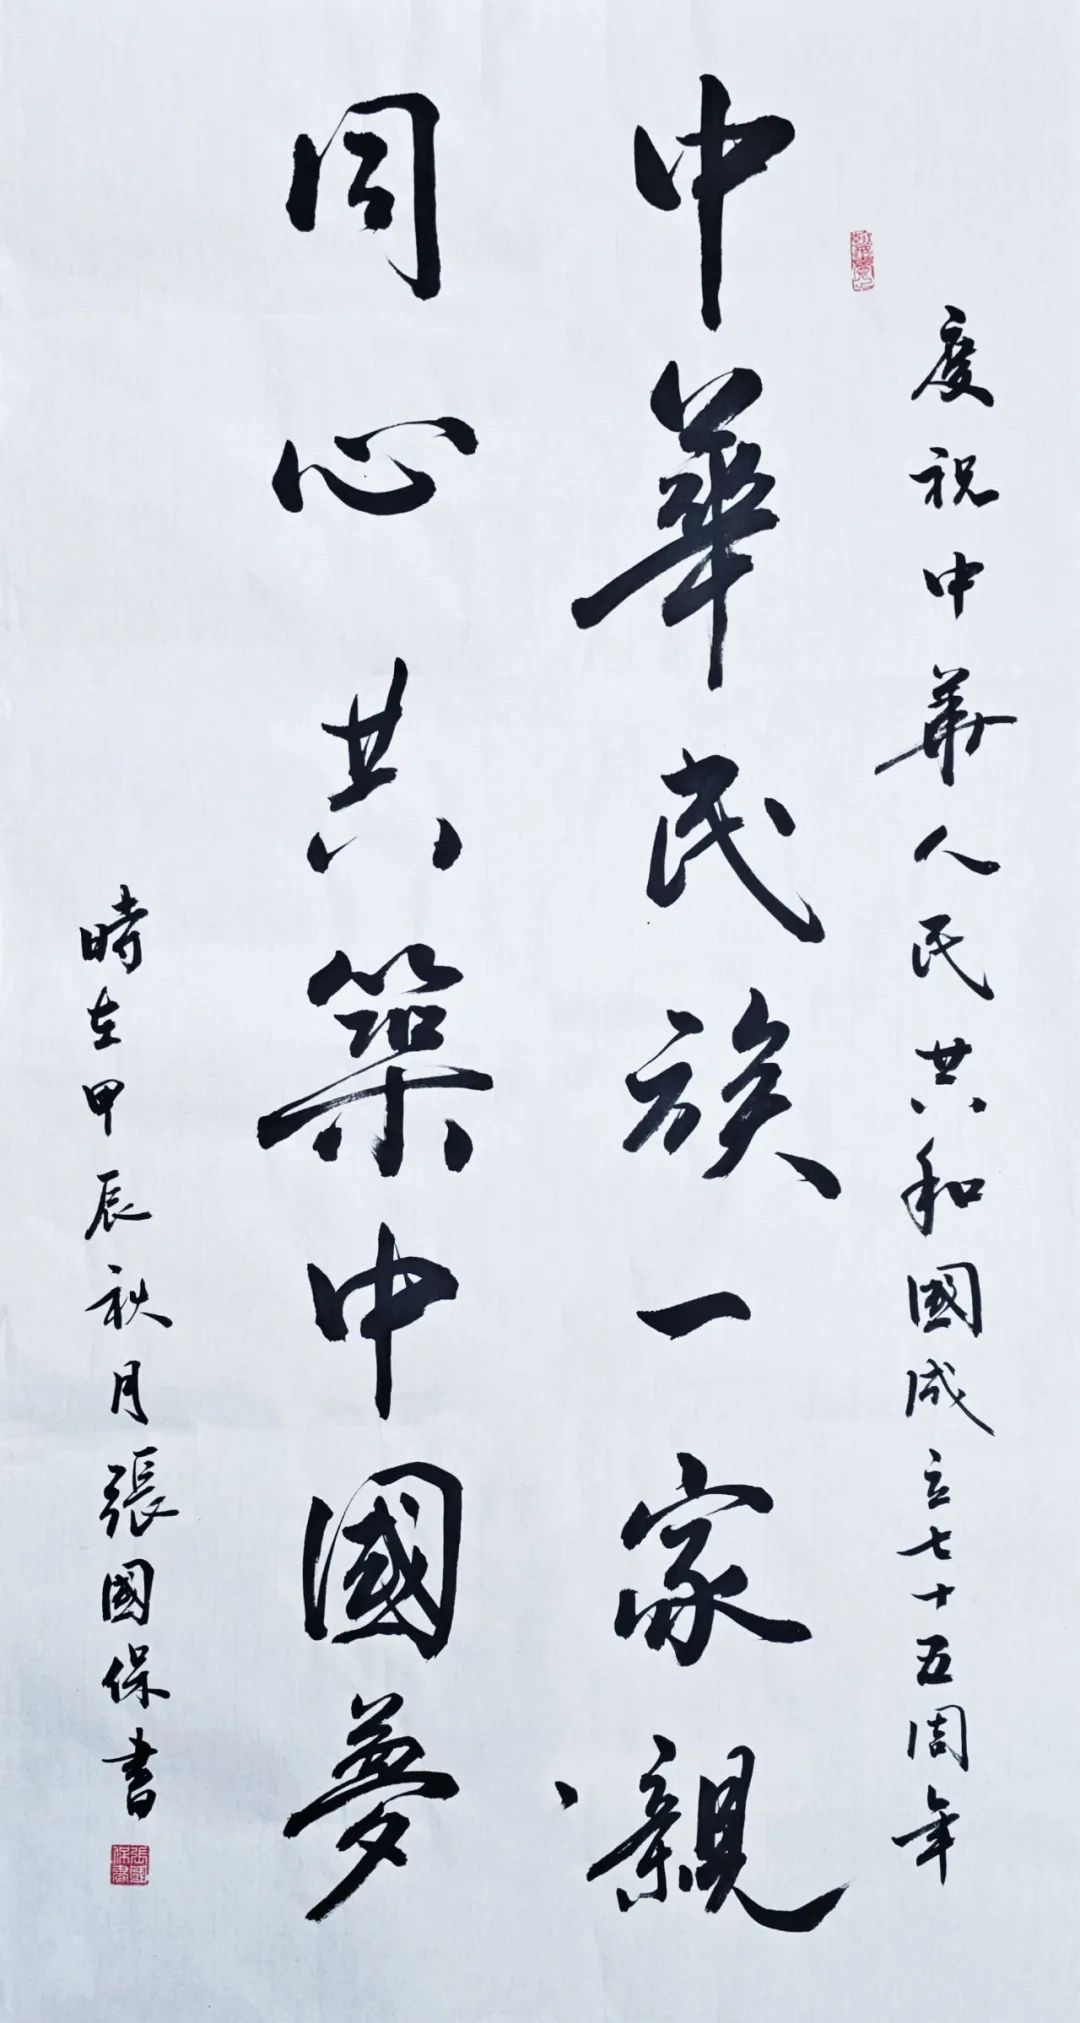 慶祝中華人民共和國成立七十五周年
中華民族一家親
同心共築中國夢
時在甲辰秋月張國保書
張國保書